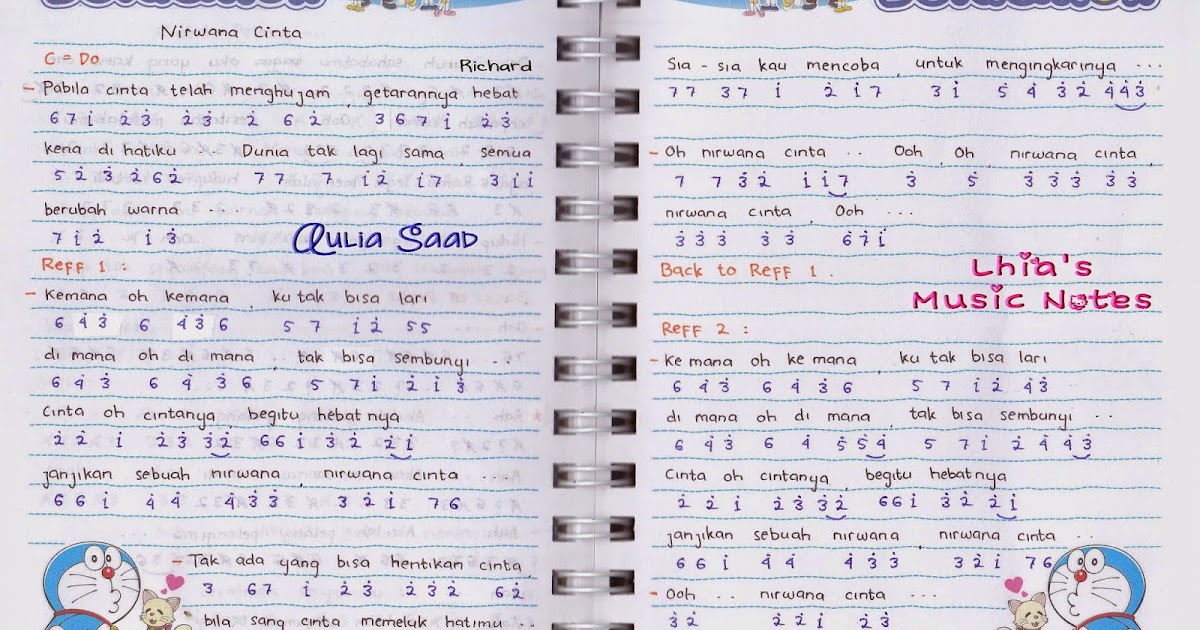 Nirwana Cinta
C = Do
Richard
- Pabila cinta telah menghujam, getarannya hebat
6 7 i̇ 2̇ 3̇ 2̇ 3̇ 2̇ 6 2̇ 3 6 7 i̇ 2̇ 3̇
kena di hatiku ... Dunia tak lagi sama semua
5 2̇ 3̇ 2̇ 6 2̇ 7 7 7 i̇ 2̇ i̇ 7 3 i̇ i̇
berubah warna ...
7 i̇ 2̇ i̇ 3̇
Aulia Saad
Reff 1 :
- Kemana oh kemana, ku tak bisa lari
6 4̇ 3̇ 6 4̇ 3̇ 6 5 7 i̇ 2̇ 5 5
di mana oh di mana .. tak bisa sembunyi ..
6 4̇ 3̇ 6 4̇ 3̇ 6 5 7 i̇ 2̇ i̇ 3̇
Cinta oh cintanya begitu hebatnya
2̇ 2̇ i̇ 2̇ 3̇ 3̇ 2̇ 6 6 i̇ 3̇ 2̇ 2̇ i̇
janjikan sebuah nirwana, nirwana cinta ...
6 6 i̇ 4̇ 4̇ 4̇ 3̇ 3̇ 3̇ 2̇ i̇ 7 6
- Tak ada yang bisa hentikan cinta,
3 6 7 i̇ 2̇ 3̇ 2̇ 3̇ 2̇ 6 2̇
bila sang cinta memeluk hatimu ...
Sia - sia kau mencoba, untuk mengingkarinya ...
7 7 3 7 i̇ 2̇ i̇ 7 3 i̇ 5̇ 4̇ 3̇ 2̇ 4̇ 4̇ 3̇
- Oh nirwana cinta ... Ooh, Oh nirwana cinta,
7 7 3̇ 2̇ i̇ i̇ 7 3̇ 5̇ 3̇ 3̇ 3̇ 3̇ 3̇
nirwana cinta, Ooh ...
3̇ 3̇ 3̇ 3̇ 3̇ 6 7 i̇
Back to Reff 1.
Lhia's
Music Notes
Reff 2 :
- Ke mana oh ke mana, ku tak bisa lari
6 4̇ 3̇ 6 4̇ 3̇ 6 5 7 i̇ 2̇ 4̇ 3̇
di mana oh di mana, tak bisa sembunyi ..
6 4̇ 3̇ 6 4̇ 5̇ 5̇ 4̇ 5 7 i̇ 2̇ 4̇ 4̇ 3̇
Cinta oh cintanya, begitu hebatnya
2̇ 2̇ i̇ 2̇ 3̇ 3̇ 2̇ 6 6 i̇ 3̇ 2̇ 2̇ i̇
janjikan sebuah nirwana, nirwana cinta ...
6 6 i̇ 4̇ 4̇ 4̇ 3̇ 3̇ 3̇ 2̇ i̇ 7 6
- Ooh .. nirwana cinta ...
3̇ 2̇ 2̇ 2̇ i̇ 2̇ 3̇